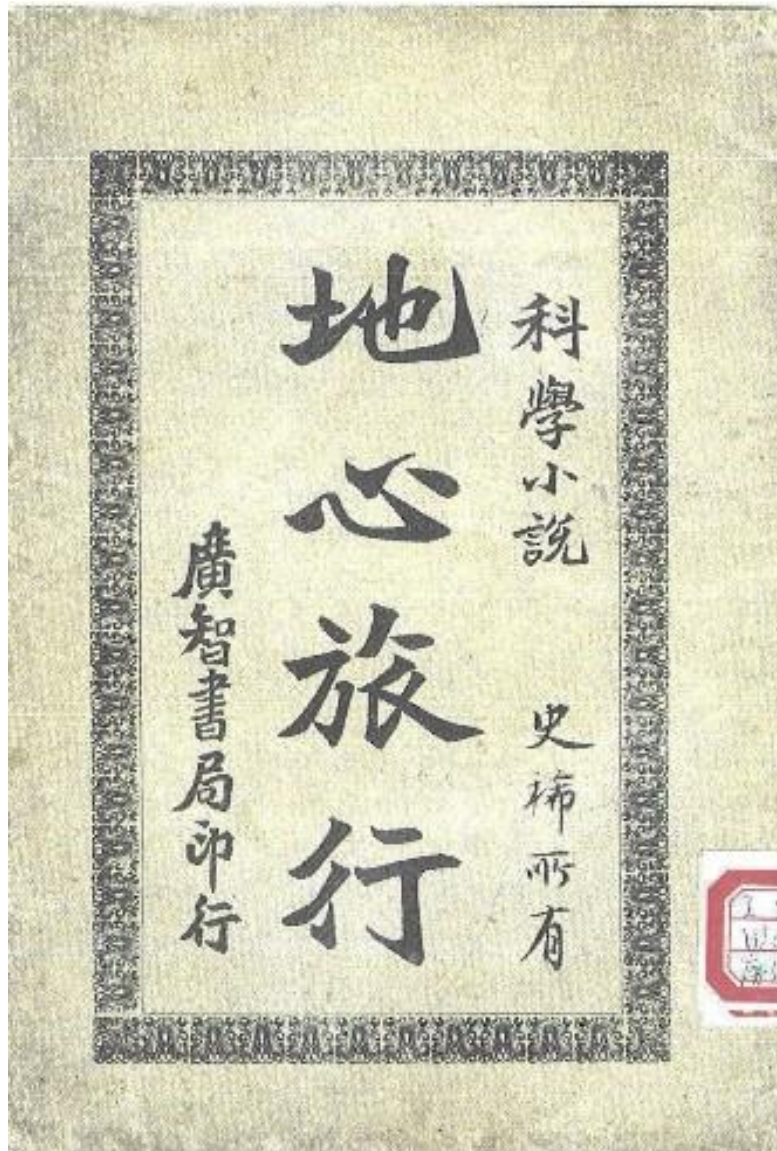 科學小說
史稀所有
地心旅行
廣智書局印行